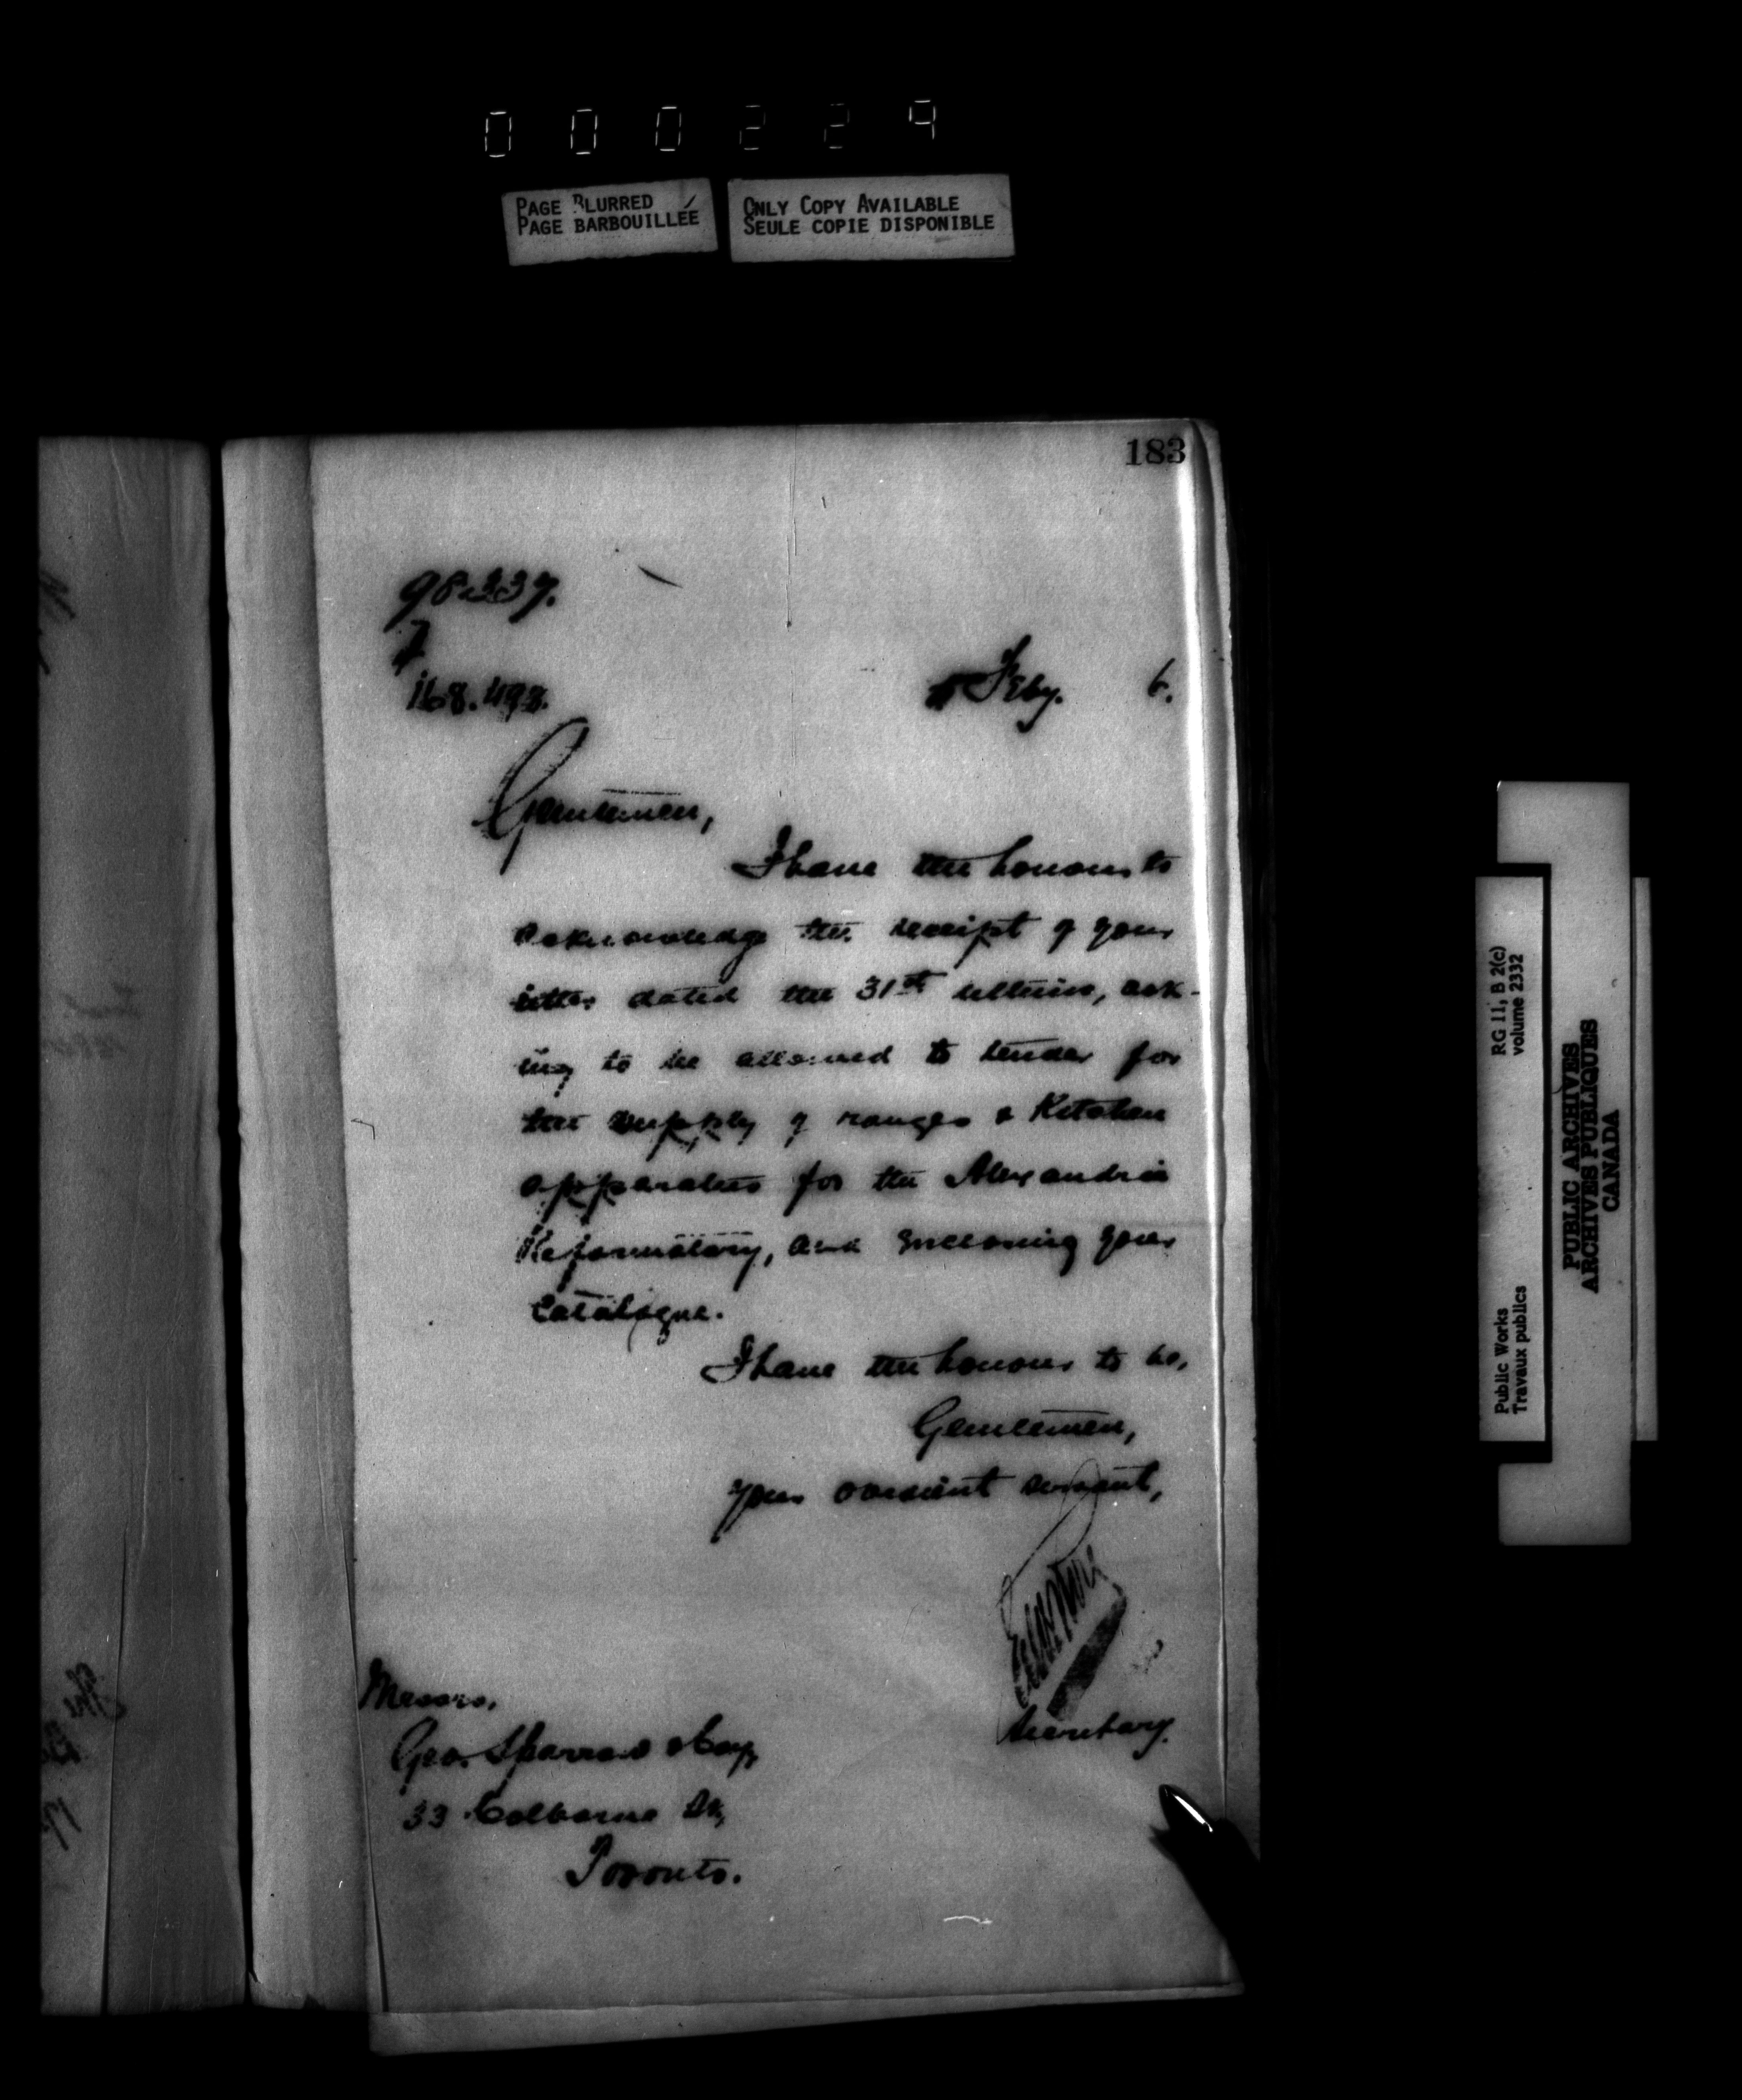 000229
PAGE BLURRED
PAGE BARBOUILLÉE
ONLY COPY AVAILABLE
SEULE COPIE DISPONIBLE
183
Feby. 6.
Gentlemen,
I have the honour to
acknowledge the receipt of your
letter dated the 31st ultimo, ask-
ing to be allowed to tender for
the supply of ranges & Kitchen
apparatus for the Alexandria
Reformatory, and enclosing your
Catalogue.
I have the honour to be,
Gentlemen,
Your obedient servant,
Secretary.
Messrs.
Geo. Sparrow & Coy,
33 Colborne St,
Toronto.
RG 11, B 2(c)
volume 2332
Public Works
Travaux publics
PUBLIC ARCHIVES
ARCHIVES PUBLIQUES
CANADA